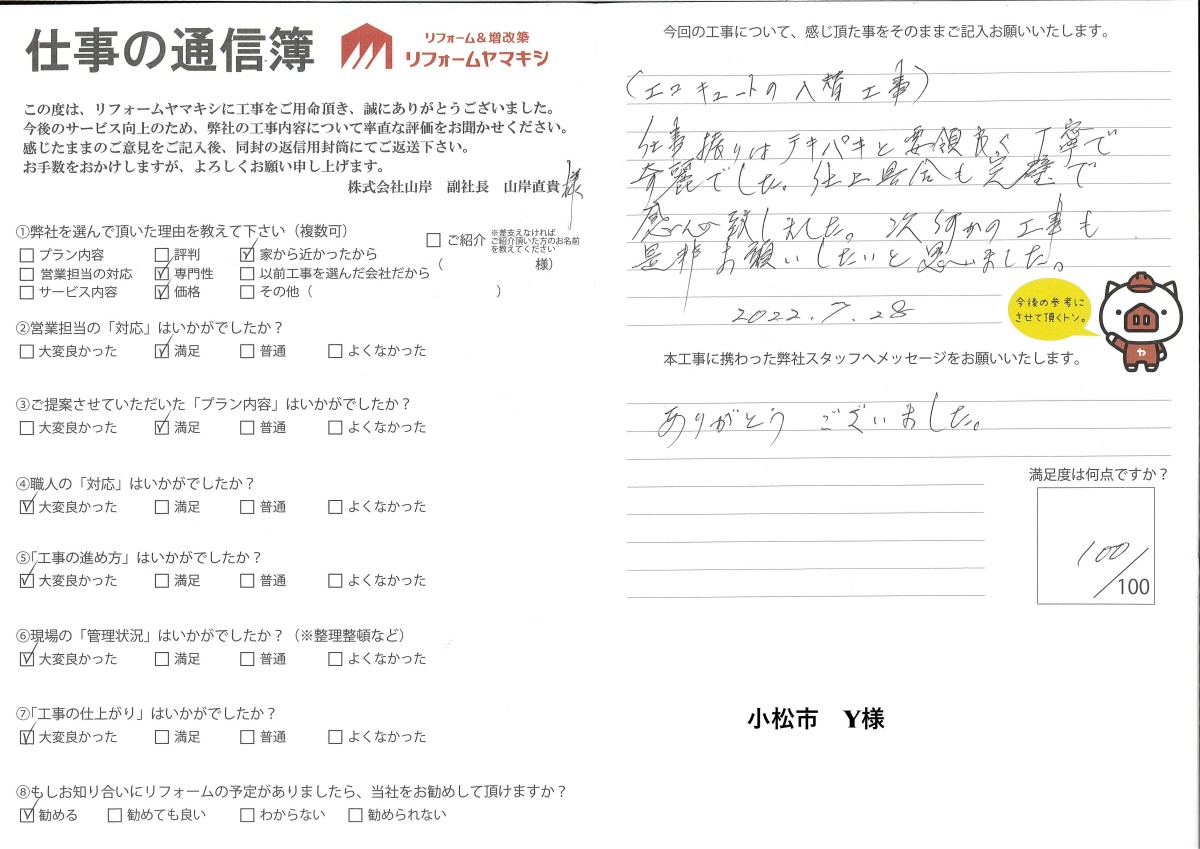 仕事の通信簿
リフォーム＆増改築
リフォームヤマキシ
この度は、リフォームヤマキシに工事をご用命頂き、誠にありがとうございました。
今後のサービス向上のため、弊社の工事内容について率直な評価をお聞かせください。
感じたままのご意見をご記入後、同封の返信用封筒にてご返送下さい。
お手数をおかけしますが、よろしくお願い申し上げます。
株式会社山岸　副社長　山岸直貴 様
①弊社を選んで頂いた理由を教えて下さい（複数可）
□ プラン内容　□ 評判　☑ 家から近かったから
□ 営業担当の対応　☑ 専門性　□ 以前工事を選んだ会社だから
□ サービス内容　☑ 価格　□ その他（　　　）
□ ご紹介 ※差支えなければ
ご紹介頂いた方のお名前
を教えてください
（　　　様）
②営業担当の「対応」はいかがでしたか？
□ 大変良かった　☑ 満足　□ 普通　□ よくなかった
③ご提案させていただいた「プラン内容」はいかがでしたか？
□ 大変良かった　☑ 満足　□ 普通　□ よくなかった
④職人の「対応」はいかがでしたか？
☑ 大変良かった　□ 満足　□ 普通　□ よくなかった
⑤「工事の進め方」はいかがでしたか？
☑ 大変良かった　□ 満足　□ 普通　□ よくなかった
⑥現場の「管理状況」はいかがでしたか？（※整理整頓など）
☑ 大変良かった　□ 満足　□ 普通　□ よくなかった
⑦「工事の仕上がり」はいかがでしたか？
☑ 大変良かった　□ 満足　□ 普通　□ よくなかった
⑧もしお知り合いにリフォームの予定がありましたら、当社をお勧めして頂けますか？
☑ 勧める　□ 勧めても良い　□ わからない　□ 勧められない
今回の工事について、感じ頂た事をそのままご記入お願いいたします。
（エコキュートの入替工事）
仕事振りはテキパキと要領良く丁寧で
奇麗でした。仕上具合も完璧で
感心致しました。次何かの工事も
是非お願いしたいと思いました。
2022.7.28
今後の参考に
させて頂くトン。
ヤ
本工事に携わった弊社スタッフへメッセージをお願いいたします。
ありがとうございました。
満足度は何点ですか？
100/100
小松市　Y様